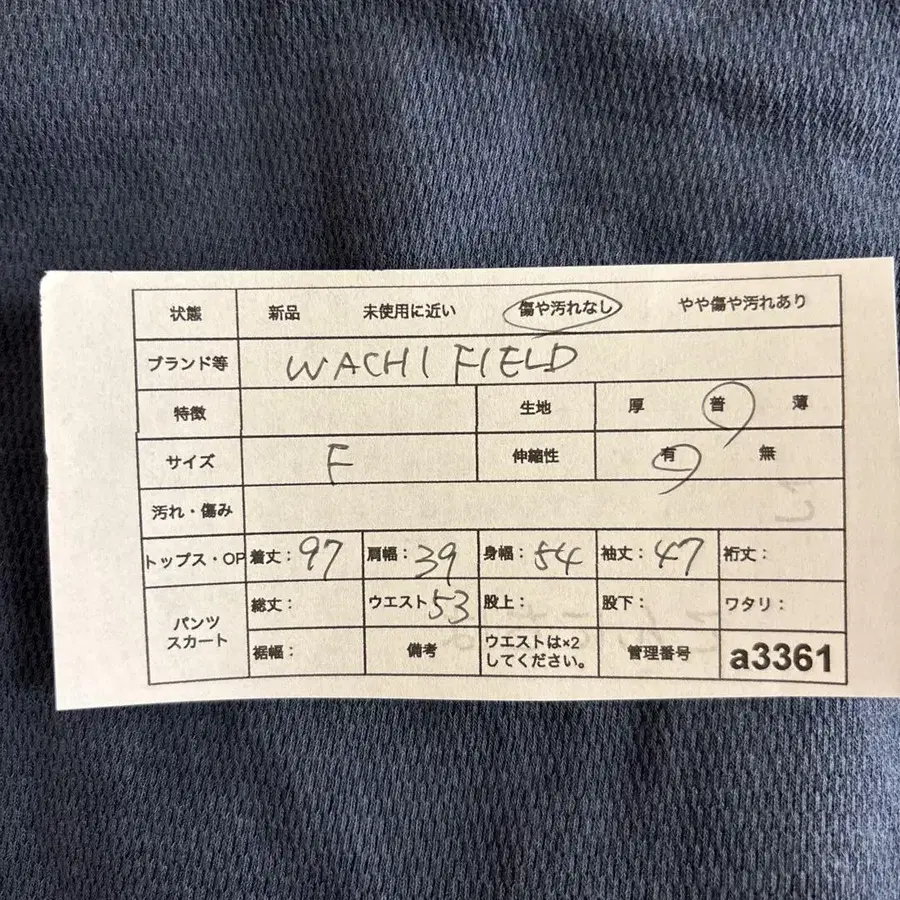 状態 新品 未使用に近い 傷や汚れなし やや傷や汚れあり
ブランド等 WACHI FIELD
特徴 生地 厚 普 薄
サイズ F 伸縮性 有 無
汚れ・傷み
トップス・OP 着丈：97 肩幅：39 身幅：54 袖丈：47 裄丈：
パンツ
スカート
総丈： ウエスト 53 股上： 股下： ワタリ：
裾幅： 備考 ウエストは×2
してください。 管理番号 a3361